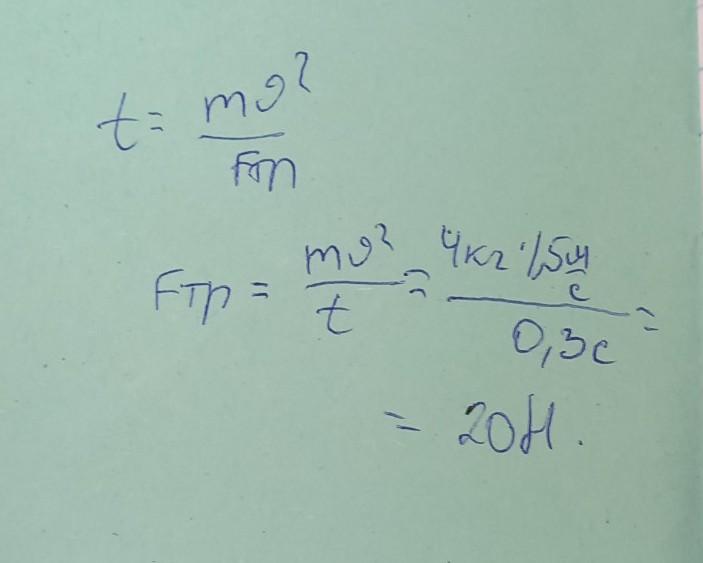 t = mϑ²/Fтр
Fтр = mϑ²/t = 4кг · 1,5 м/с / 0,3с =
= 20Н.